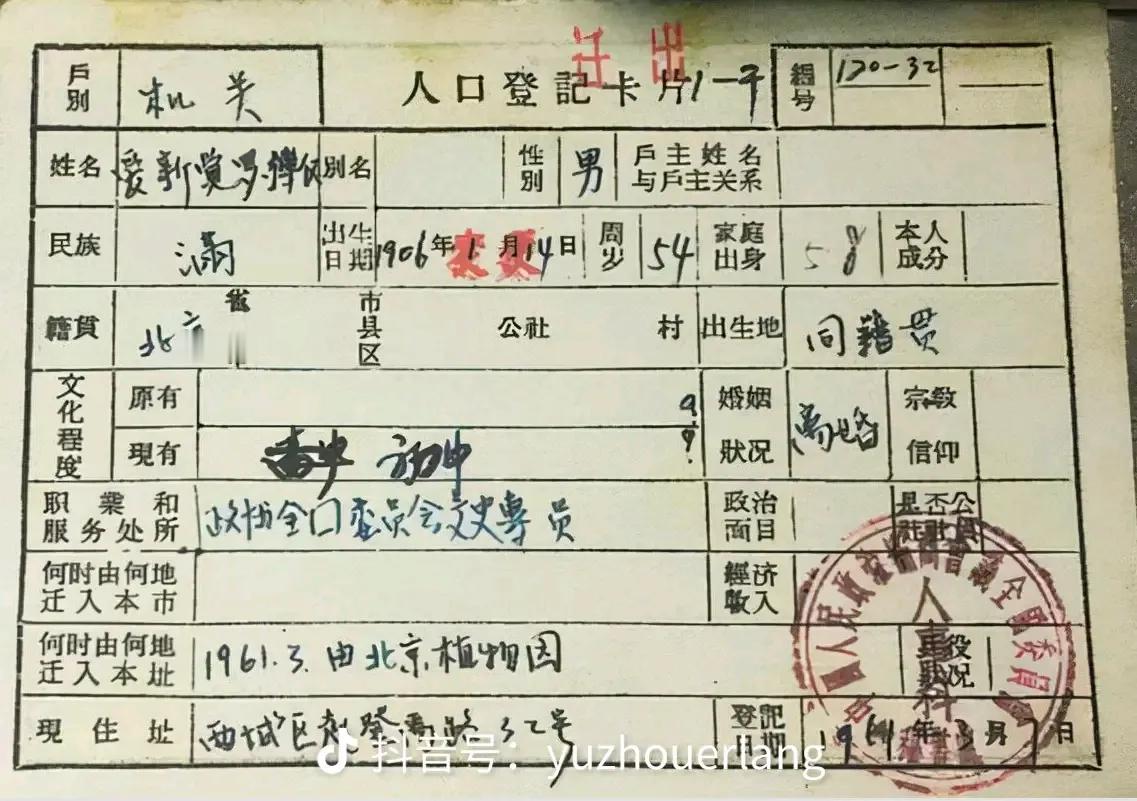 迁出
戶別 机关 人口登記卡片1-7 編号 120-32
姓名 爱新觉罗 別名 性別 男 戶主姓名与戶主关系
民族 满 出生日期 1906年1月14日 周岁 54 家庭出身 58 本人成分
籍貫 北京省 市县区 公社 村 出生地 同籍贯
文化程度 原有 婚姻狀况 离婚 宗教信仰
現有 初中
职業和服务处所 政协全囗委员会文史專员 政治面目 是否公社社員
何时由何地迁入本市 經济收入
何时由何地迁入本址 1961.3.由北京植物园 役狀况
現住址 西城区赵登禹路32号 登記日期 1961年3月7日
中國人民政治協商會議全國委員會
人事科
抖音号：yuzhouerlang